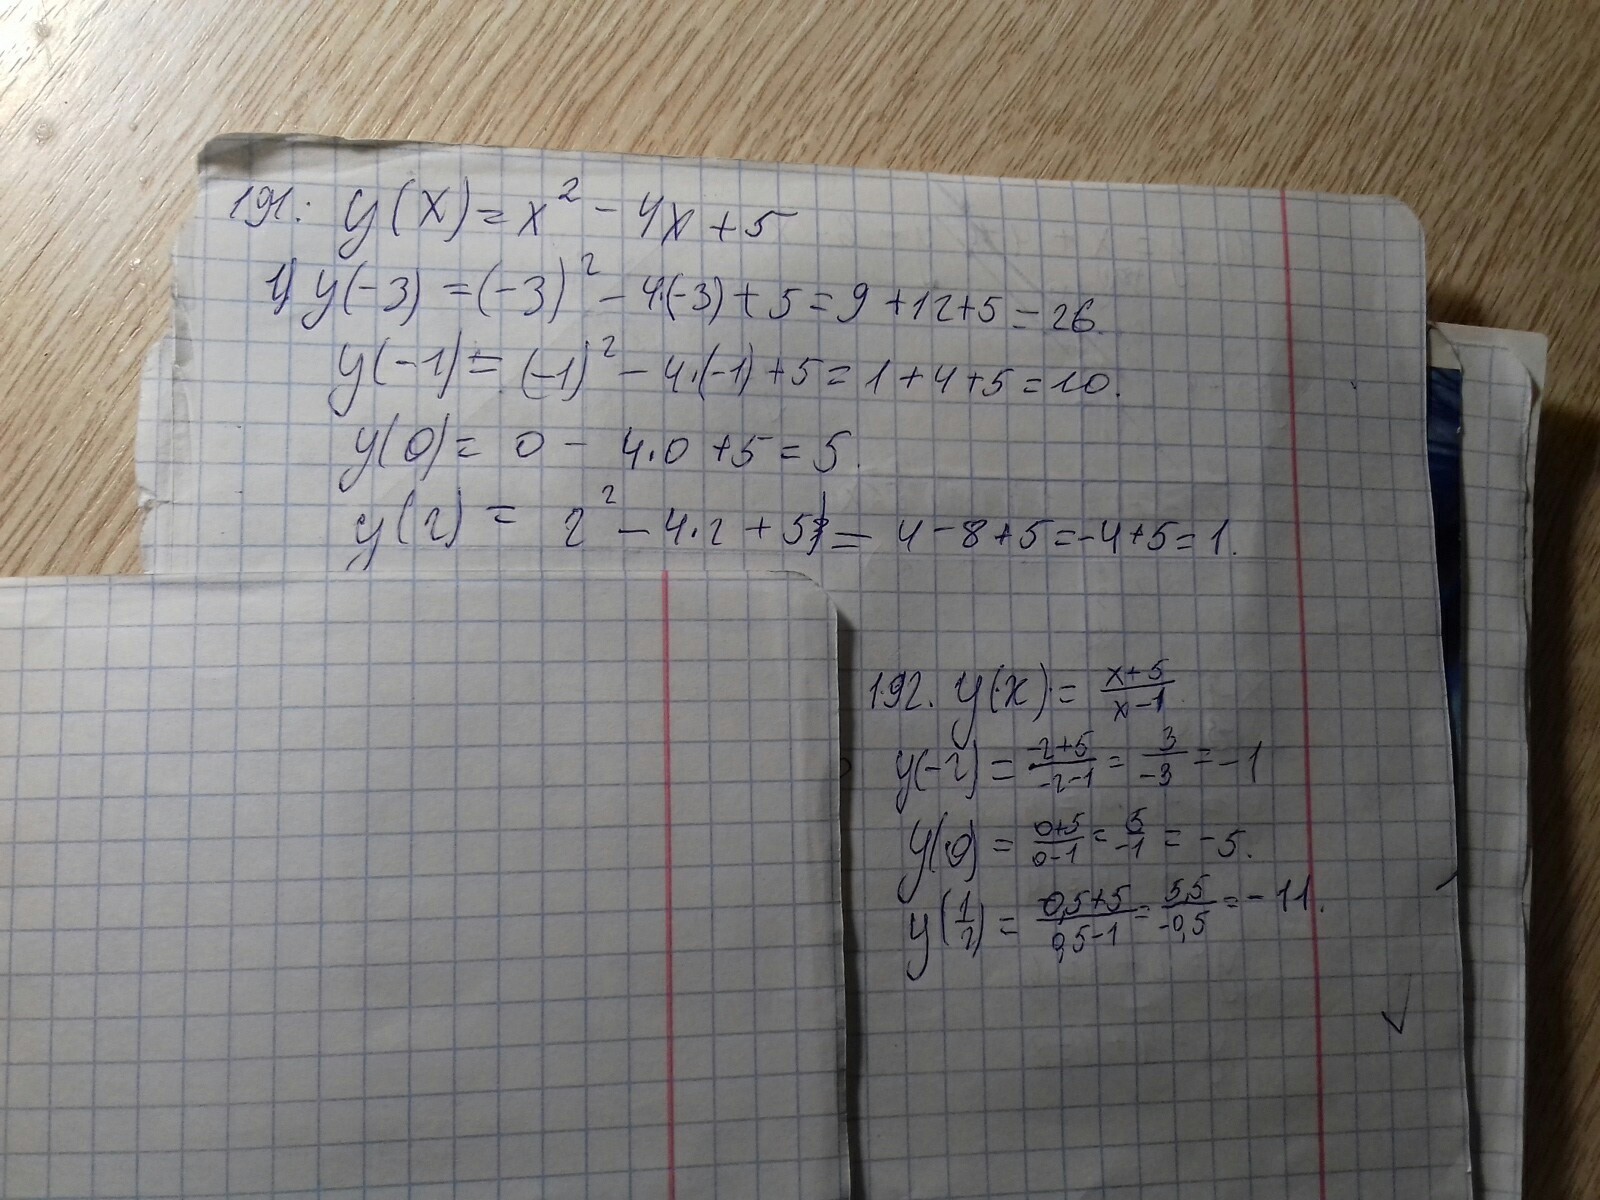 191. y(x) = x² - 4x + 5
1) y(-3) = (-3)² - 4·(-3) + 5 = 9 + 12 + 5 = 26.
y(-1) = (-1)² - 4·(-1) + 5 = 1 + 4 + 5 = 10.
y(0) = 0 - 4·0 + 5 = 5.
y(2) = 2² - 4·2 + 5 = 4 - 8 + 5 = -4 + 5 = 1.
192. y(x) = (x+5)/(x-1)
y(-2) = (-2+5)/(-2-1) = 3/(-3) = -1
y(0) = (0+5)/(0-1) = 5/(-1) = -5.
y(1/2) = (0,5+5)/(0,5-1) = 5,5/(-0,5) = -11.